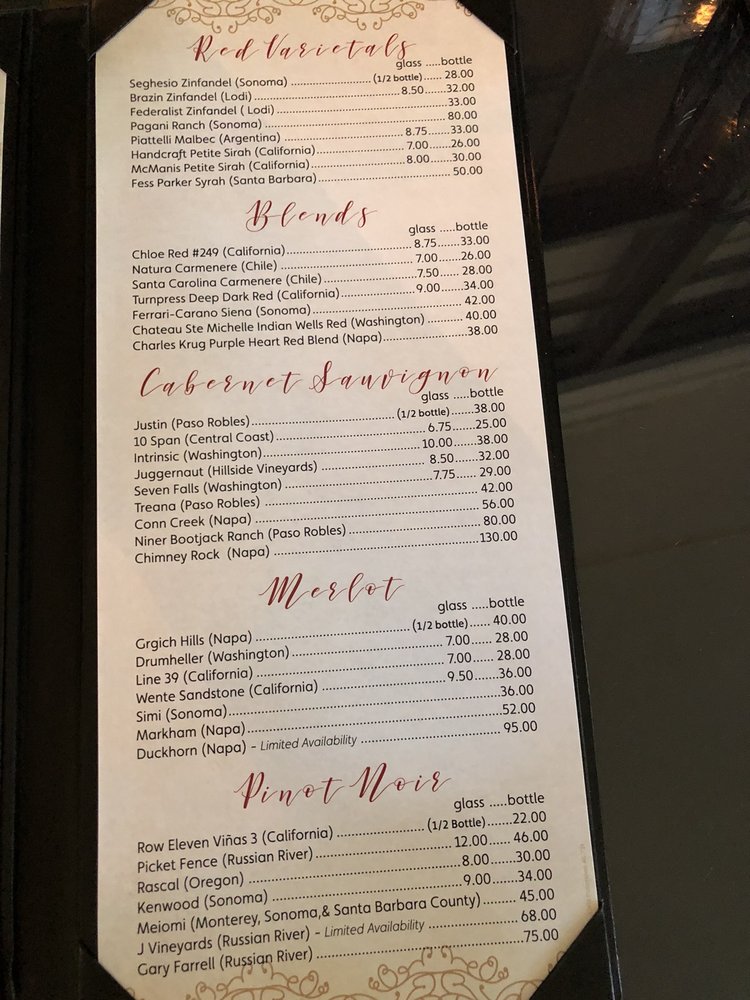 Red Varietals
glass .....bottle
Seghesio Zinfandel (Sonoma) ........................(1/2 bottle)...... 28.00
Brazin Zinfandel (Lodi)............................................8.50.......32.00
Federalist Zinfandel ( Lodi)......................................................33.00
Pagani Ranch (Sonoma) .........................................................80.00
Piattelli Malbec (Argentina) ....................................8.75.......33.00
Handcraft Petite Sirah (California)...........................7.00.......26.00
McManis Petite Sirah (California).............................8.00.......30.00
Fess Parker Syrah (Santa Barbara)..........................................50.00
Blends
glass .....bottle
Chloe Red #249 (California).....................................8.75.......33.00
Natura Carmenere (Chile) ........................................7.00.......26.00
Santa Carolina Carmenere (Chile) ...........................7.50...... 28.00
Turnpress Deep Dark Red (California)......................9.00.......34.00
Ferrari-Carano Siena (Sonoma)............................................ 42.00
Chateau Ste Michelle Indian Wells Red (Washington) .......... 40.00
Charles Krug Purple Heart Red Blend (Napa)........................38.00
Cabernet Sauvignon
glass .....bottle
Justin (Paso Robles)..........................................(1/2 bottle).......38.00
10 Span (Central Coast)...........................................6.75.......25.00
Intrinsic (Washington)............................................10.00.......38.00
Juggernaut (Hillside Vineyards) ...............................8.50.......32.00
Seven Falls (Washington) .........................................7.75....... 29.00
Treana (Paso Robles) ........................................................... 42.00
Conn Creek (Napa) .............................................................. 56.00
Niner Bootjack Ranch (Paso Robles)...................................... 80.00
Chimney Rock (Napa) ..........................................................130.00
Merlot
glass .....bottle
Grgich Hills (Napa) ..........................................(1/2 bottle)...... 40.00
Drumheller (Washington) ........................................7.00...... 28.00
Line 39 (California) ..................................................7.00...... 28.00
Wente Sandstone (California) ..................................9.50.......36.00
Simi (Sonoma)........................................................................36.00
Markham (Napa)....................................................................52.00
Duckhorn (Napa) – Limited Availability .................................. 95.00
Pinot Noir
glass .....bottle
Row Eleven Viñas 3 (California) .......................(1/2 Bottle).......22.00
Picket Fence (Russian River)...................................12.00...... 46.00
Rascal (Oregon) .......................................................8.00.......30.00
Kenwood (Sonoma) .................................................9.00.......34.00
Meiomi (Monterey, Sonoma,& Santa Barbara County)......... 45.00
J Vineyards (Russian River) – Limited Availability ..................... 68.00
Gary Farrell (Russian River) ....................................................75.00